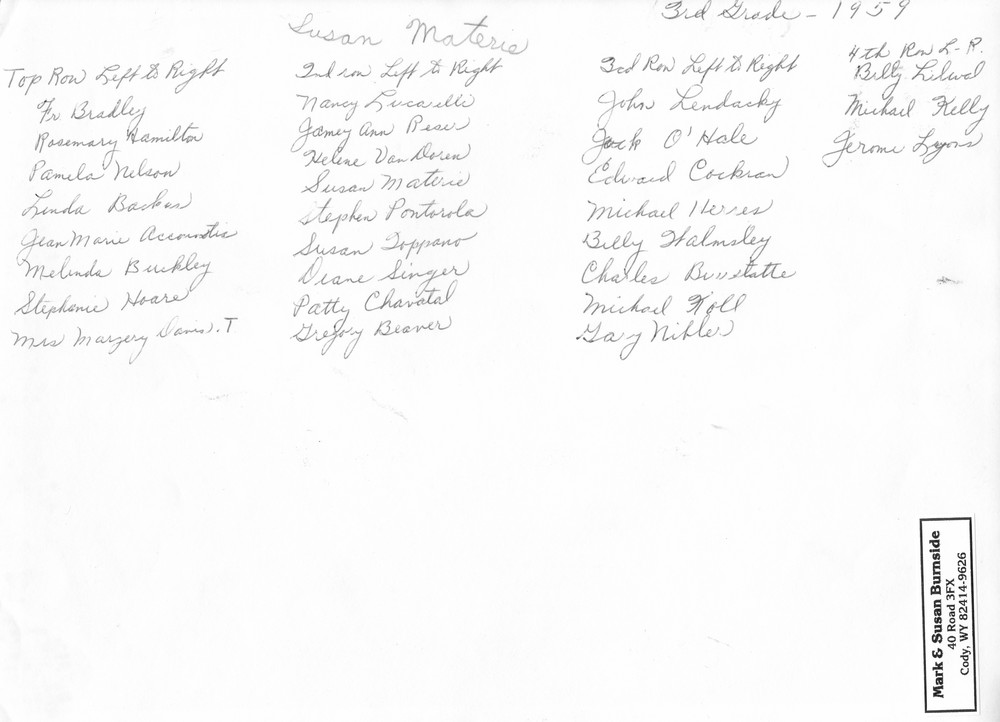 3rd Grade - 1959
Susan Materie
Top Row Left to Right
Fr Bradley
Rosemary Hamilton
Pamela Nelson
Linda Backus
Jean Marie
Melinda Buckley
Stephanie Hoare
Mrs Margery Davis. T
2nd row Left to Right
Nancy Lucaselli
Jamey Ann Reser
Helene Van Doren
Susan Materie
Stephen Pontorola
Susan Toppano
Diane Singer
Patty Chavatal
Gregory Beaver
3rd Row Left to Right
John Lendacky
Jack O'Hale
Edward Cockran
Michael
Billy Walmsley
Charles
Michael Koll
Gary
4th Row L-R.
Billy
Michael Kelly
Jerome Lyons
Mark & Susan Burnside
40 Road 3FX
Cody, WY 82414-9626